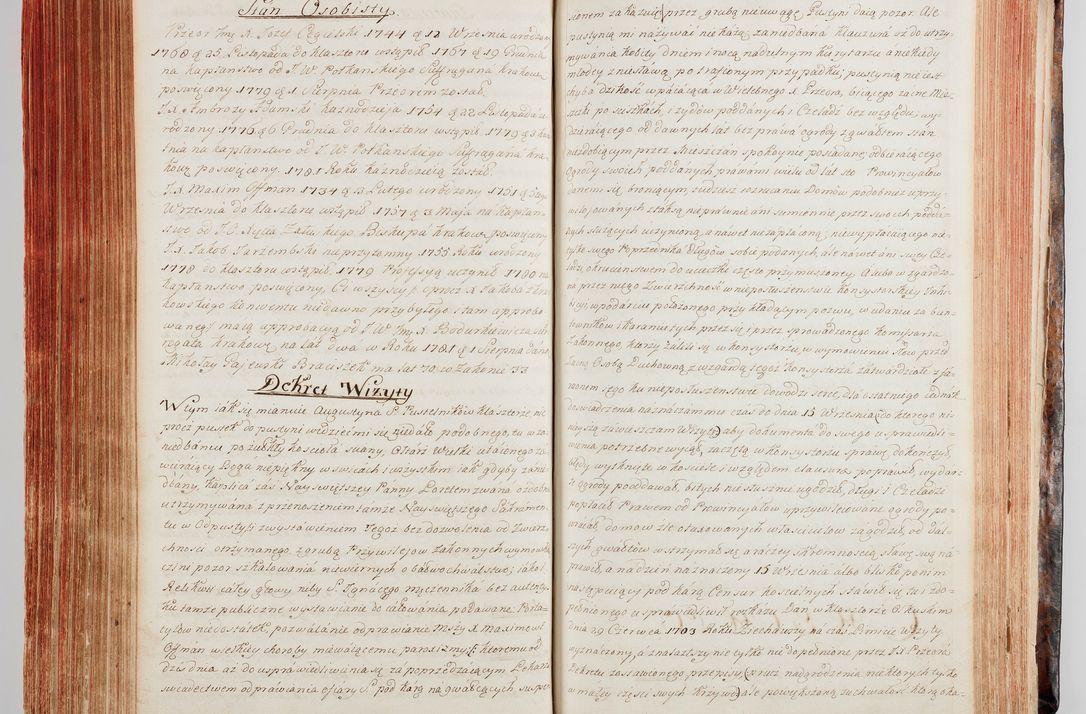 Stan Osobisty.
Przeor Jmx Jozef Cegielski 1744 d 12 Września urodzony
1768 d 25 Listopada do klasztoru wstąpił 1767 d 19 Grudnia
na kapłanstwo od J. W. Potkanskiego Suffragana krakow:
poswięcony 1779 d 1 Sierpnia Przeorem został.
J.X. Ambroży Adamski kaznodzieja 1754 d 22 Listopada u=
rodzony 1776 d 6 Grudnia do klasztoru wstąpił 1779 d 3
na kapłanstwo od J. W. Potkanskiego Suffragana kra=
kow: poswięcony. 1781 Roku kaznodzieią został.
J.X. Maxim Offman 1734 d 3 Lutego urodzony 1751 d
Września do klasztoru wstąpił 1757 d 3 Maja na kapłan=
stwo od J. O. Xcia Załuskiego Biskupa krakow: poswięcony
J.X. Jakob Jarzembski na przyzamny 1755 Roku urodzony
1778 do klasztoru wstąpił 1779 Professyą uczynił 1780 na
kapłanstwo poswięcony, Ci wszyscy prócz X Jakoba z kra=
kowskiego konwentu niedawno przybyłego tam approbo
wanego maią approbacyą od J. W. Jmx. Bodurkiewicza suf=
ragana krakow: na lat dwa w Roku 1781 d 1 Sierpnia daną
Mikołay Gajewski Braciszek ma lat 70 w Zakonie 33
Dekret Wizyty
W tym jak się mianuie Augustyna S. Pustelników klasztorze, nic
procz pustek do pustyni widzieć mi się niedało podobnego, tu w za=
niedbaniu pozwoitey kościoła ściany, Ołtarz Wielki utaionego za=
wieraiący Boga niepiękny w swicach i wszystkim iak gdyby zanie=
dbany, kaplica zaś Nayswiętszey Panny Loretem zwana ozdobnie
utrzymywana z przenoszeniem tamże Nayswiętszego Sakramen=
tu w Odpusty i z wystawieniem Tegoż bez dozwolenia od Zwierz=
chności otrzymanego z grubą Przywileiow zakonnych wymowką
czyni pozor szkalowania niewiernych o bałwochwalstwo; iako i
Relikwii całey głowy niby S. Ignacego męczennika bez autenty=
ku tamże publiczne wystawianie do całowania podawane: Prela=
cyiow niedostatek, pozwalanie odprawianie Mszy X. Maximowi
Offman wielkiey choroby miewaiącemu paroxizmy, ktoremu od
dziś dnia aż do usprawiedliwienia się za poprzedzaiącym Lekarza
swiadectwem odprawiania ofiary S. pod karą na gwałcących, suspen=
sionem zakazuię, przez grubą nieuwagę Pustyni daią pozor. Ale
pustynią mi nazywać nie każą zaniedbana klauzura aż do utrzy=
mywania kobiety dniem i nocą na dolnym kurytarzu a niekiedy
młodey z niesławą potrafionym przypadku; pustynią nie iest
chyba dzikość wpaiaiąca w Wielebnego X Przeora, biiącego zacne Miesz=
szczki po suszkach, i żydow poddanych i Czeladź bez względu, wy=
dzieraiącego od dawnych lat bez prawa ogrody z gwałtem stan
nazdobiącym przez Mieszczan spokoynie posiadane; odbieraiącego
Ogrody swoich poddanych prawami wielu od lat sto Prowincyałow
danemi się broniącym, tudzież rozrucaniu Domow podobnież uprzy=
wileiowanych szkodą nieprawnie ani sumiennie przez swoich podda=
nych służących uczynioną, a nawet niezapłaconą, niewypłacaiącego nie
tylko swego Poprzednika długow sobie podanych, ale nawet ani swey Cze=
ladzi, okrucienstwem do ucieczki często przymuszoney. A lubo w zgardzo=
na przez niego Zwierzchność w nieposłuszenstwie konsystorskiey Inhi=
bicyi, w podarciu położonego przy kładzącym pozwu, w udaniu za bun=
towników i karaniu tych przez się i przez sprowadzonego komisarza
Zakonnego, ktorzy żalili się w konsystorzu, w wymowieniu słow przed
Zacną Osobą Duchowną z wzgardą iegoż konsystorza zatwardziałe z za=
wonem iego ku nieposłuszenstwie dowodzi serce, dla ostatniego iednak
doswiadczenia naznaczam mu czas do dnia 15 Września (do ktorego nie=
nayszą zawieszam Wizytę) aby dokumenta do swego usprawiedli=
wienia potrzebne wyiął, zaczętą w konsystorzu sprawę dokończył,
błędy wytknięte w kościele i względem clausurae poprawił, wydarz=
te ogrody pooddawał, bitych niesłusznie ugodził, długi i Czeladź
popłacił Prawem od Prowincyałow uprzywileiowane ogrody po=
wracał, domow źle otaxowanych właścicielow zagodził, od dal=
szych gwałtow wstrzymał się, a raczey skromnością sławę swą na=
prawił, a na dzień naznaczony 15 Września albo blisko po nim
następuiący pod karą Censur kościelnych stawił się tu i zdo=
pełnionego usprawiedliwił rozkazu. Dan w klasztorze Olkuskim
dnia 29 Czerwca 1783 Roku. Ziechawszy na czas Limicie Wizyty
wyznaczony, a znalazłszy nie tylko niedopełnione przez J.X. Przeora
Dekretu zostawionego przepisu, (prucz nadgrodzenia niektorych tylko
w małey części swych krzywd) ale powiększoną zuchwałość ktorą oka=